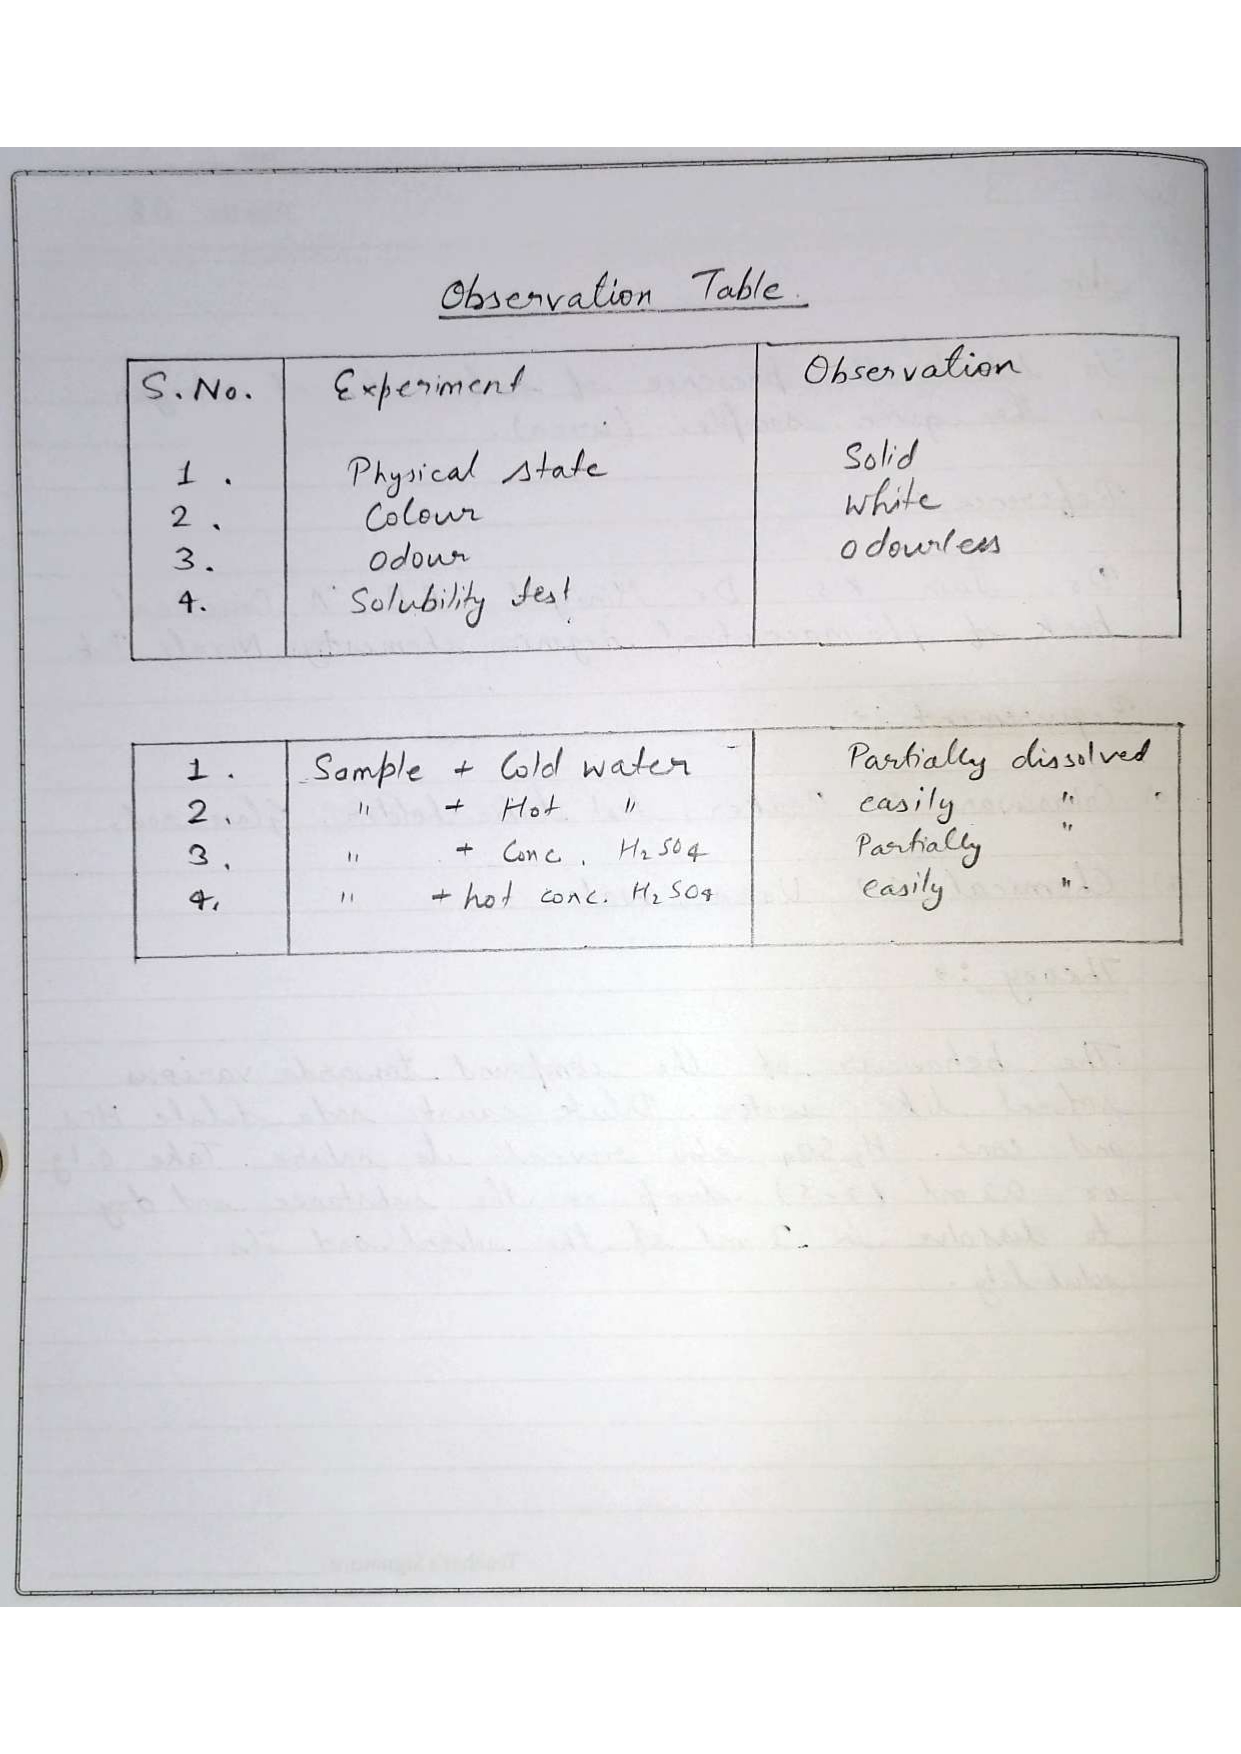 Observation Table.
S. No. Experiment Observation
1. Physical state Solid
2. Colour White
3. odour odourless
4. Solubility test
1. Sample + Cold water Partially dissolved
2. " + Hot " easily "
3. " + Conc. H₂SO₄ Partially "
4. " + hot conc. H₂SO₄ easily ".